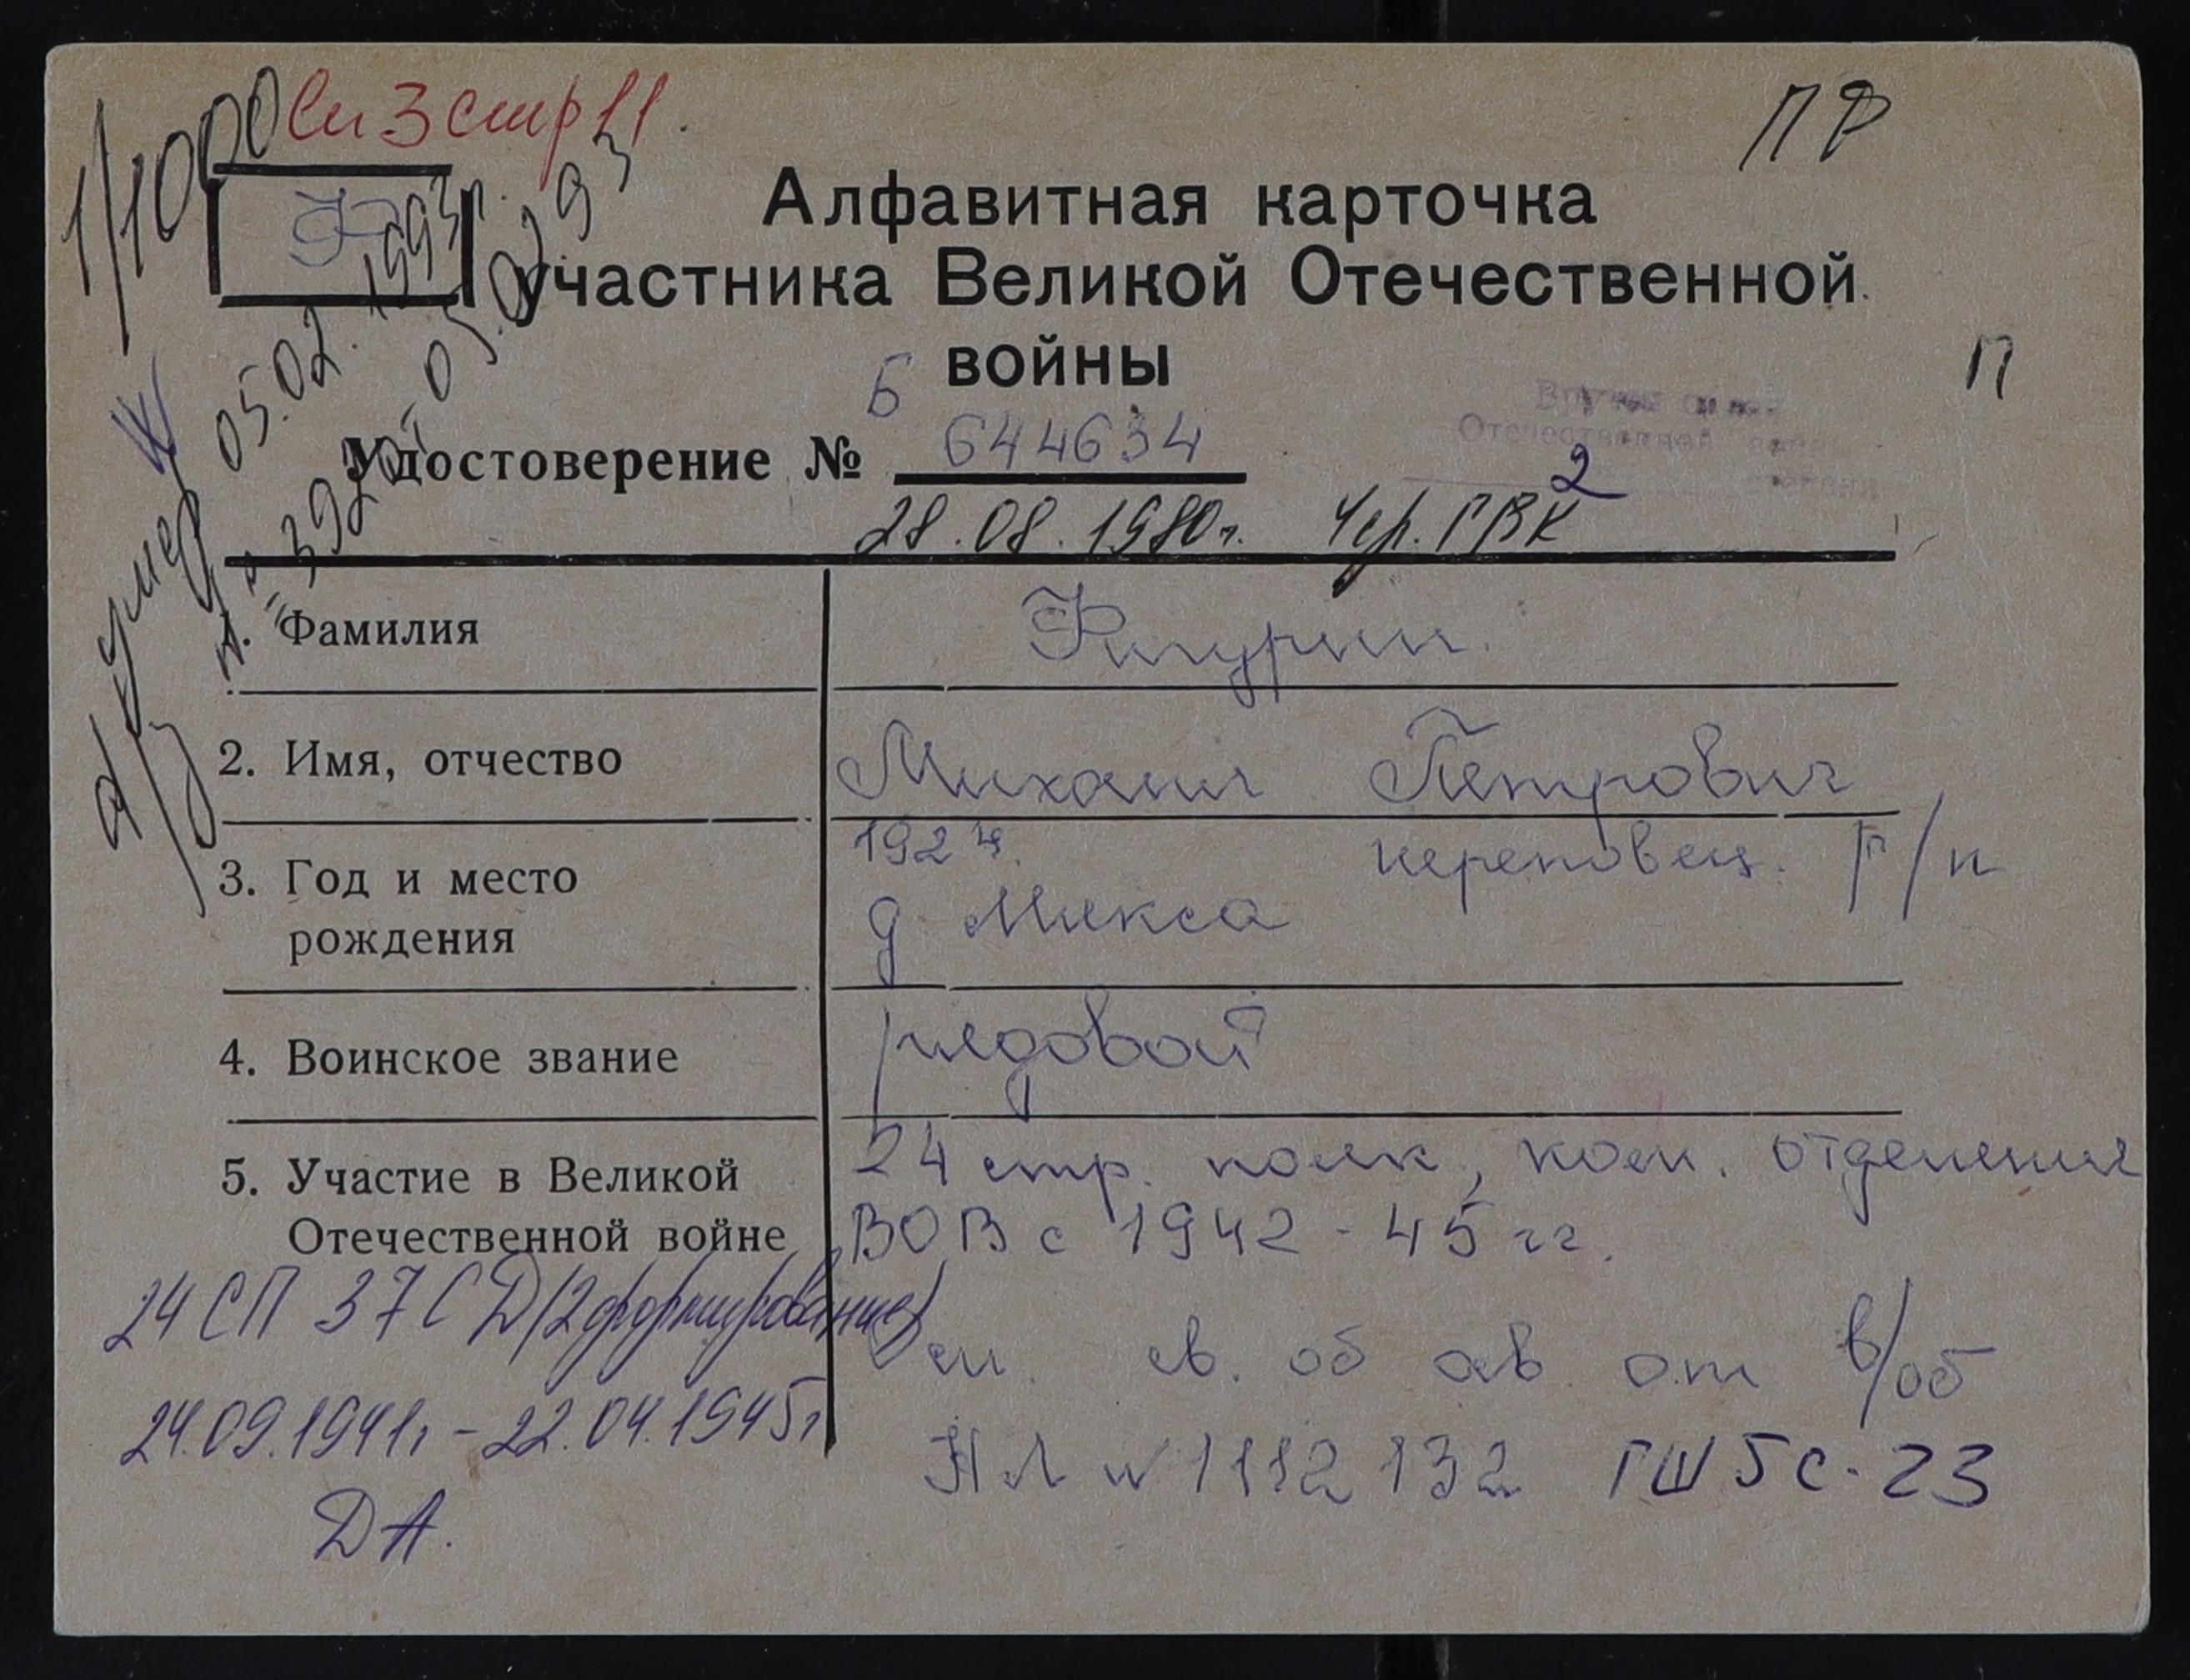 1/1000 Сп 3 стр 11.
ПР
Ф
Алфавитная карточка
участника Великой Отечественной
войны
П
Б
Удостоверение № 644634
Отечественной
2
28.08.1980г. Чер. ГВК
умер 05.02.1993г.
№ 392 от 05.02.93
1. Фамилия
Фигурин.
2. Имя, отчество
Михаил Петрович
3. Год и место
рождения
1924. Череповец. Г/п
д. Микса
4. Воинское звание
рядовой
5. Участие в Великой
Отечественной войне
24 стр. полк, ком. отделения
ВОВ с 1942 - 45 гг.
24 СП 37 СД (2 формирование)
24.09.1941г. - 22.04.1945г.
ДА.
см. св. об ав. от в/об
НЛ № 1112132 ГШ 5с-23